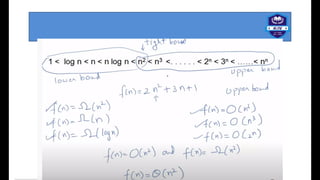 tight bound
1 < log n < n < n log n < n² < n³ < . . . . . . < 2ⁿ < 3ⁿ < ...... < nⁿ
lower bound upper bound
f(n) = 2n² + 3n + 1 upper bound
f(n) = Ω(n²) f(n) = O(n²)
f(n) = Ω(n) f(n) = O(n³)
f(n) = Ω(log n) f(n) = O(2n)
f(n) = O(n²) and f(n) = Ω(n²)
f(n) = Θ(n²)